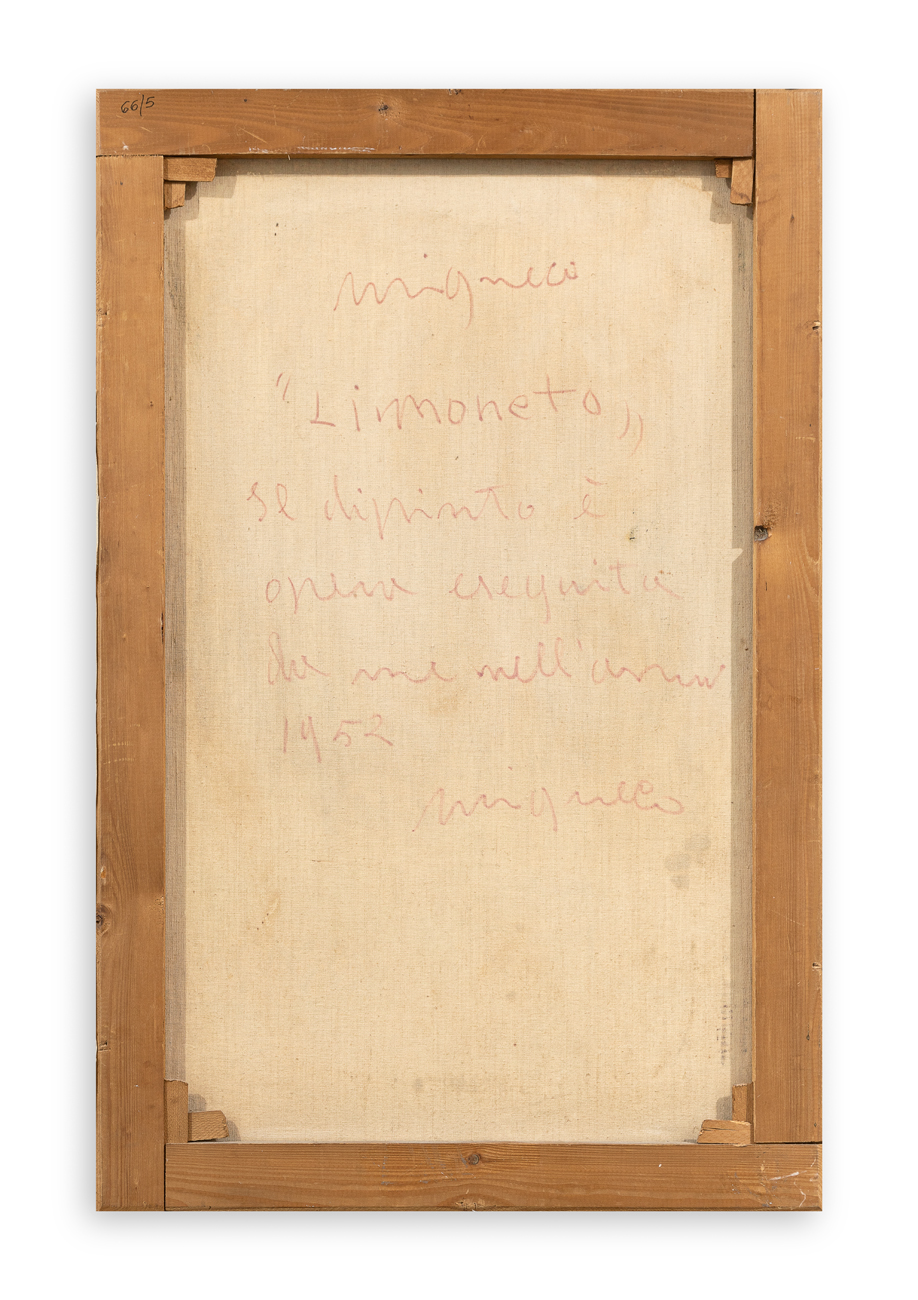 66/5
Migneco
"Limoneto„
Il dipinto è
opera eseguita
da me nell'anno
1952
Migneco